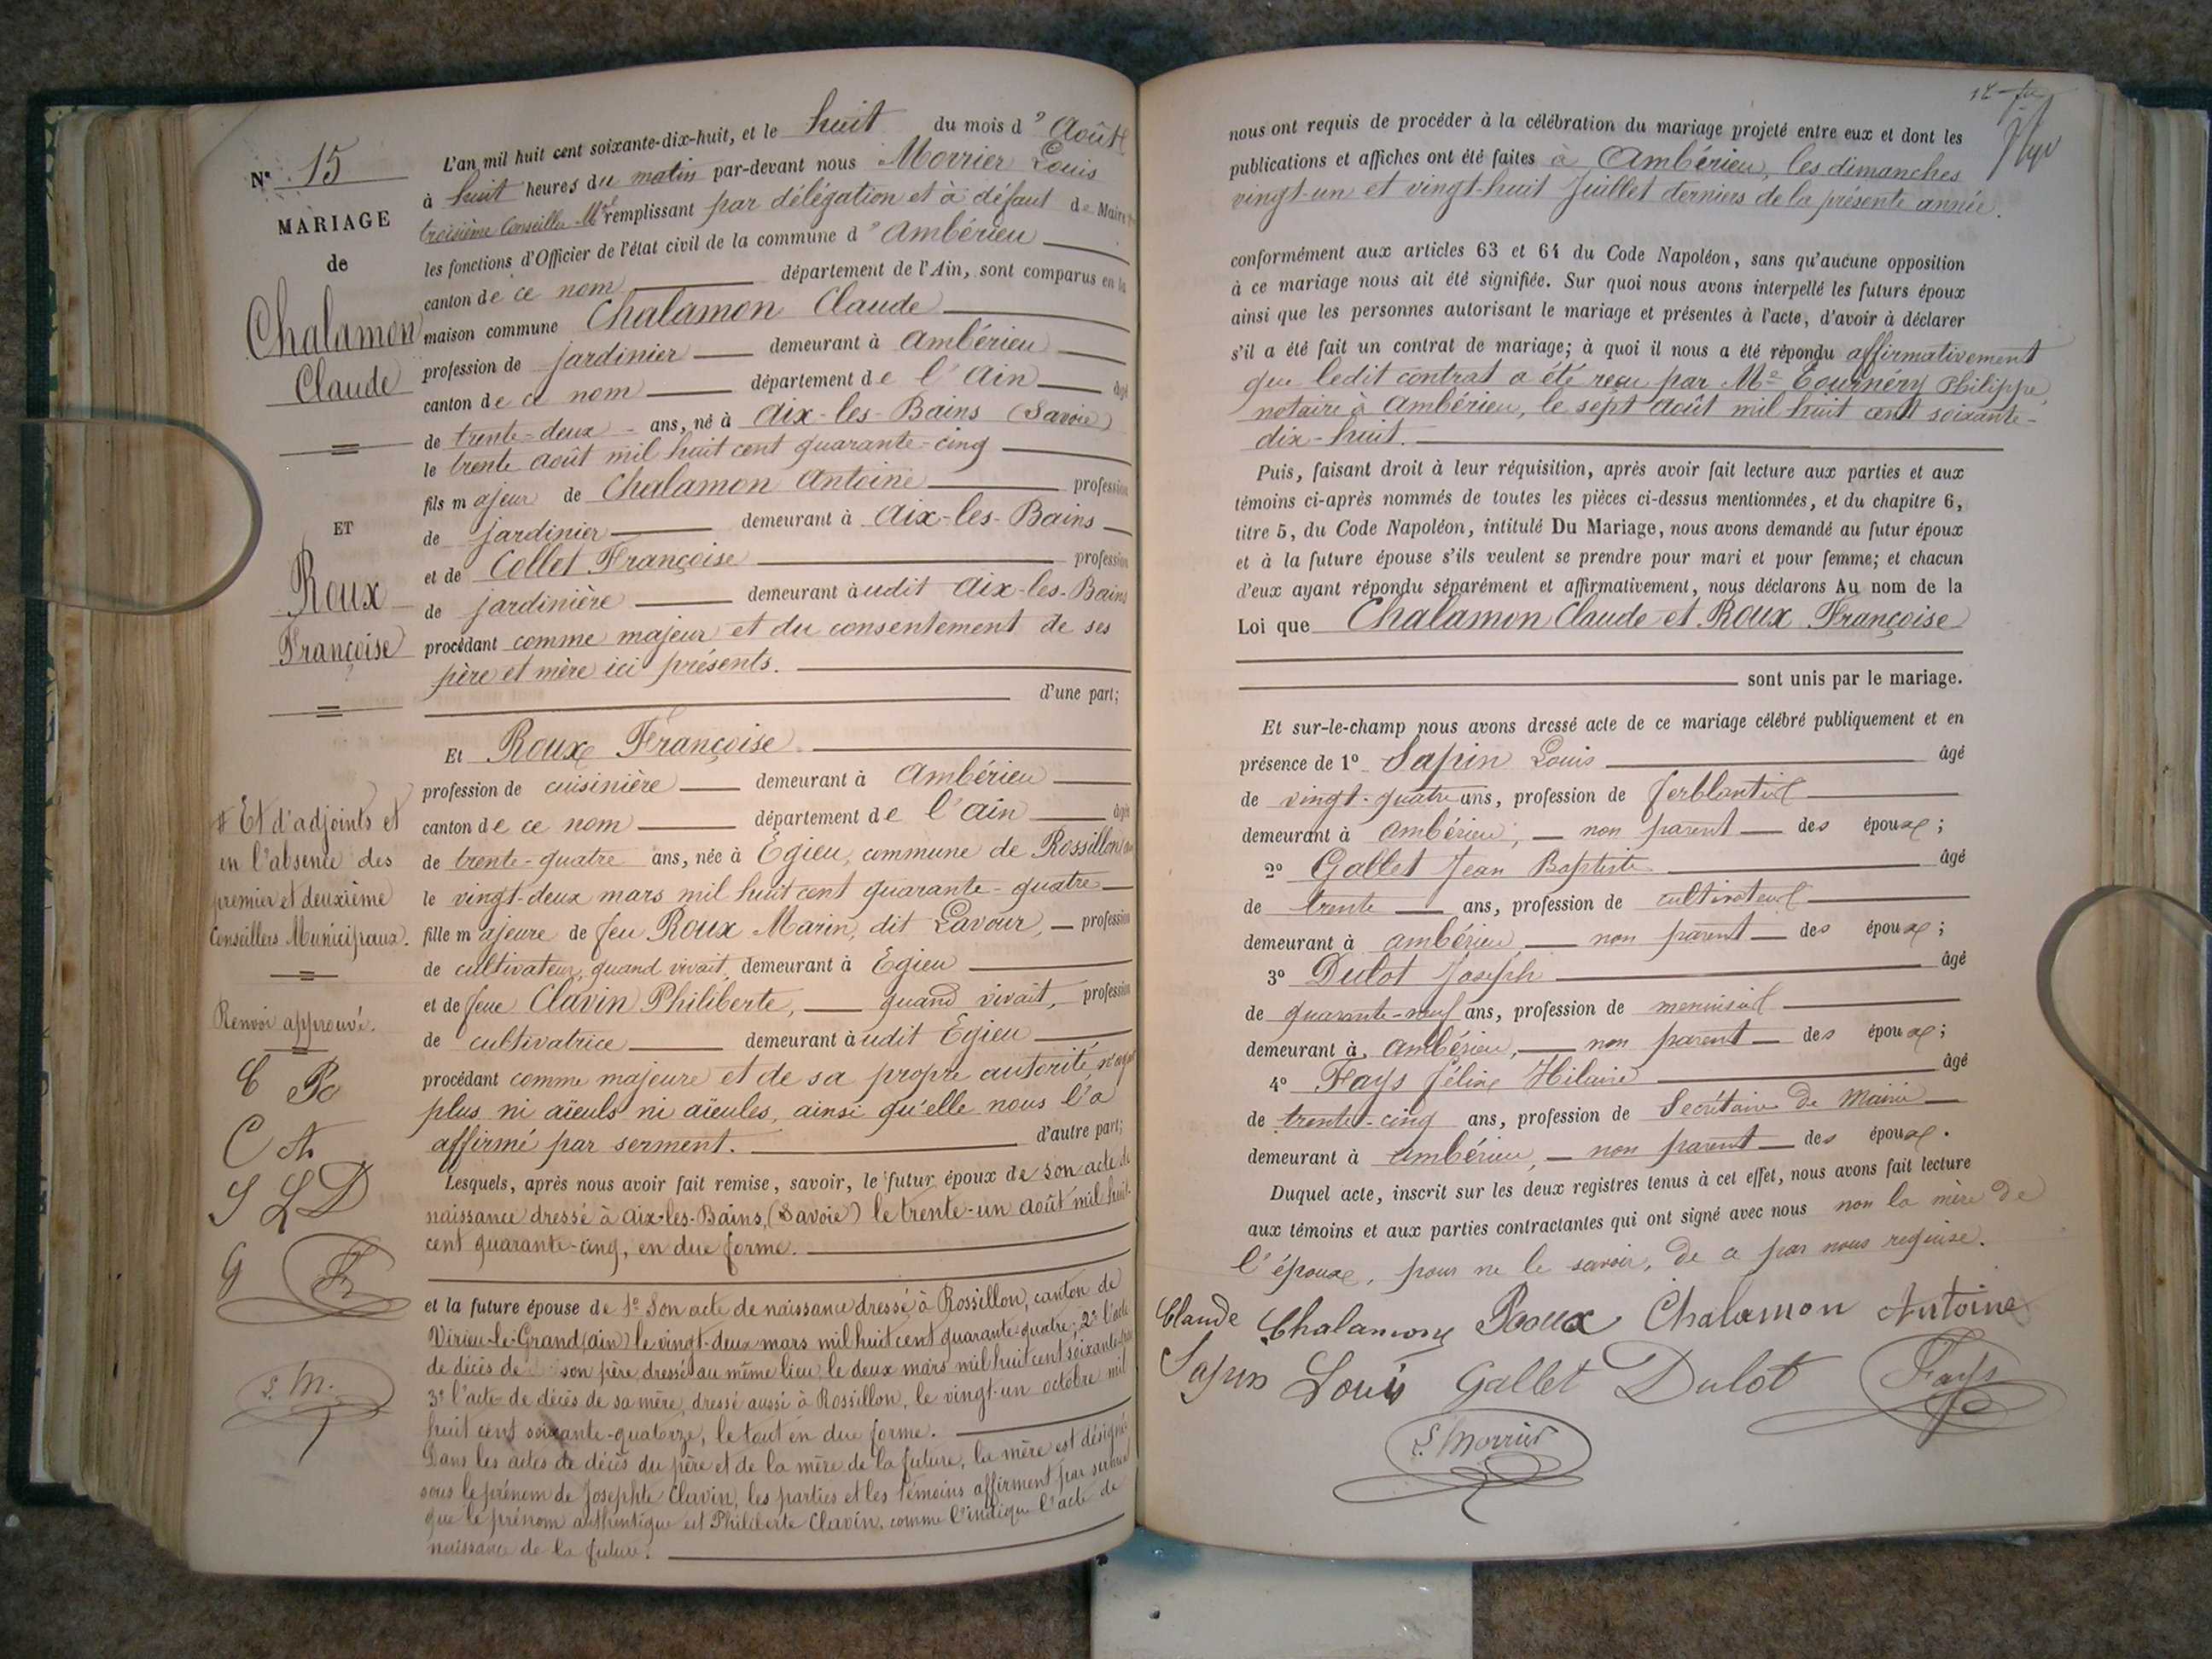 N° 15
MARIAGE
de
Chalamon
Claude
ET
Roux
Françoise
# Et d'adjoints et
en l'absence des
premier et deuxième
Conseillers Municipaux.
Renvoi approuvé.
C Ro
C A
S L D
G
L. M.
L'an mil huit cent soixante-dix-huit, et le huit du mois d'Août
à huit heures du matin par-devant nous Morrier Louis
troisième Conseiller Mal remplissant par délégation et à défaut de Maire
les fonctions d'Officier de l'état civil de la commune d'Ambérieu
canton de ce nom département de l'Ain, sont comparus en la
maison commune Chalamon Claude
profession de jardinier demeurant à Ambérieu
canton de ce nom département de l'Ain âgé
de trente-deux ans, né à Aix-les-Bains (Savoie)
le trente août mil huit cent quarante-cinq
fils majeur de Chalamon Antoine profession
de jardinier demeurant à Aix-les-Bains
et de Collet Françoise profession
de jardinière demeurant àudit Aix-les-Bains
procédant comme majeur et du consentement de ses
père et mère ici présents.
d'une part;
Et Roux Françoise
profession de cuisinière demeurant à Ambérieu
canton de ce nom département de l'Ain âgée
de trente-quatre ans, née à Egieu, commune de Rossillon
le vingt-deux mars mil huit cent quarante-quatre
fille majeure de feu Roux Marin, dit Lavour, profession
de cultivateur, quand vivait, demeurant à Egieu
et de feue Clavin Philiberte, quand vivait, profession
de cultivatrice demeurant àudit Egieu
procédant comme majeure et de sa propre autorité, n'ayant
plus ni aïeuls ni aïeules, ainsi qu'elle nous l'a
affirmé par serment. d'autre part;
Lesquels, après nous avoir fait remise, savoir, le futur époux de son acte de
naissance dressé à Aix-les-Bains, (Savoie) le trente-un août mil huit
cent quarante-cinq, en due forme.
et la future épouse de 1° Son acte de naissance dressé à Rossillon, canton de
Virieu-le-Grand (Ain) le vingt-deux mars mil huit cent quarante-quatre; 2° l'acte
de décès de son père, dressé au même lieu, le deux mars mil huit cent soixante
3° l'acte de décès de sa mère, dressé aussi à Rossillon, le vingt-un octobre mil
huit cent soixante-quatorze, le tout en due forme.
Dans les actes de décès du père et de la mère de la future, la mère est désignée
sous le prénom de Josephte Clavin, les parties et les témoins affirment par serment
que le prénom authentique est Philiberte Clavin, comme l'indique l'acte de
naissance de la future.
nous ont requis de procéder à la célébration du mariage projeté entre eux et dont les
publications et affiches ont été faites à Ambérieu, les dimanches
vingt-un et vingt-huit Juillet derniers de la présente année.
conformément aux articles 63 et 64 du Code Napoléon, sans qu'aucune opposition
à ce mariage nous ait été signifiée. Sur quoi nous avons interpellé les futurs époux
ainsi que les personnes autorisant le mariage et présentes à l'acte, d'avoir à déclarer
s'il a été fait un contrat de mariage; à quoi il nous a été répondu affirmativement
que ledit contrat a été reçu par Me Tournéry Philippe,
notaire à Ambérieu, le sept Août mil huit cent soixante-
dix-huit.
Puis, faisant droit à leur réquisition, après avoir fait lecture aux parties et aux
témoins ci-après nommés de toutes les pièces ci-dessus mentionnées, et du chapitre 6,
titre 5, du Code Napoléon, intitulé Du Mariage, nous avons demandé au futur époux
et à la future épouse s'ils veulent se prendre pour mari et pour femme; et chacun
d'eux ayant répondu séparément et affirmativement, nous déclarons Au nom de la
Loi que Chalamon Claude et Roux Françoise
sont unis par le mariage.
Et sur-le-champ nous avons dressé acte de ce mariage célébré publiquement et en
présence de 1° Sapin Louis âgé
de vingt-quatre ans, profession de ferblantier
demeurant à Ambérieu, non parent des époux;
2° Gallet Jean Baptiste âgé
de trente ans, profession de cultivateur
demeurant à Ambérieu non parent des époux;
3° Dulot Joseph âgé
de quarante-neuf ans, profession de menuisier
demeurant à Ambérieu, non parent des époux;
4° Fays Félix Hilaire âgé
de trente-cinq ans, profession de Secrétaire de Mairie
demeurant à Ambérieu, non parent des époux.
Duquel acte, inscrit sur les deux registres tenus à cet effet, nous avons fait lecture
aux témoins et aux parties contractantes qui ont signé avec nous non la mère de
l'époux, pour ne le savoir, de ce par nous requise.
Claude Chalamon Roux Chalamon Antoine
Sapin Louis Gallet Dulot Fays
L. Morrier